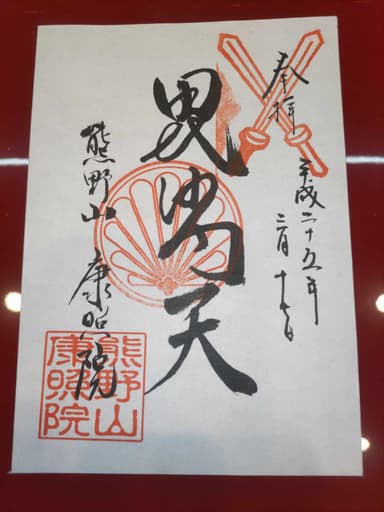 奉拝
平成二十五年
三月十七日
毘沙門天
熊野山
康照院
熊野山
康照院